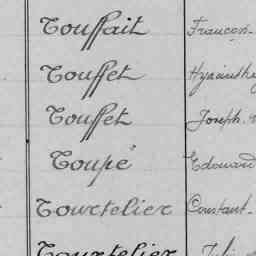 Touffait François.
Touffet Hyacinthe
Touffet Joseph.
Toupé Edouard
Tourtelier Constant.
Tourtelier